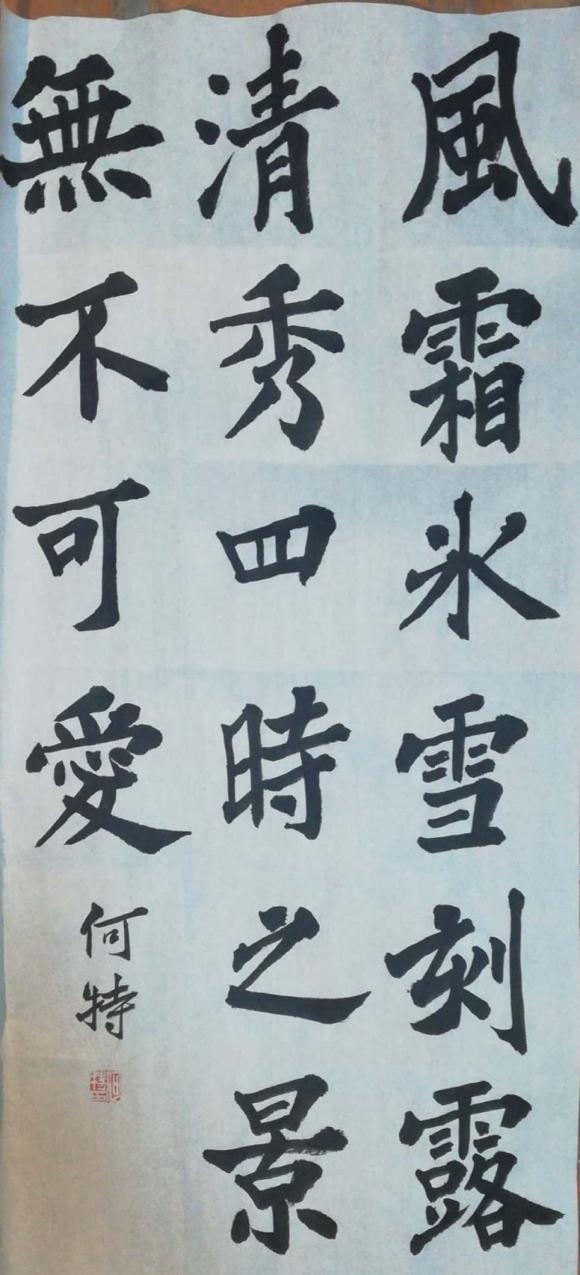 風霜冰雪刻露
清秀四時之景
無不可愛
何特